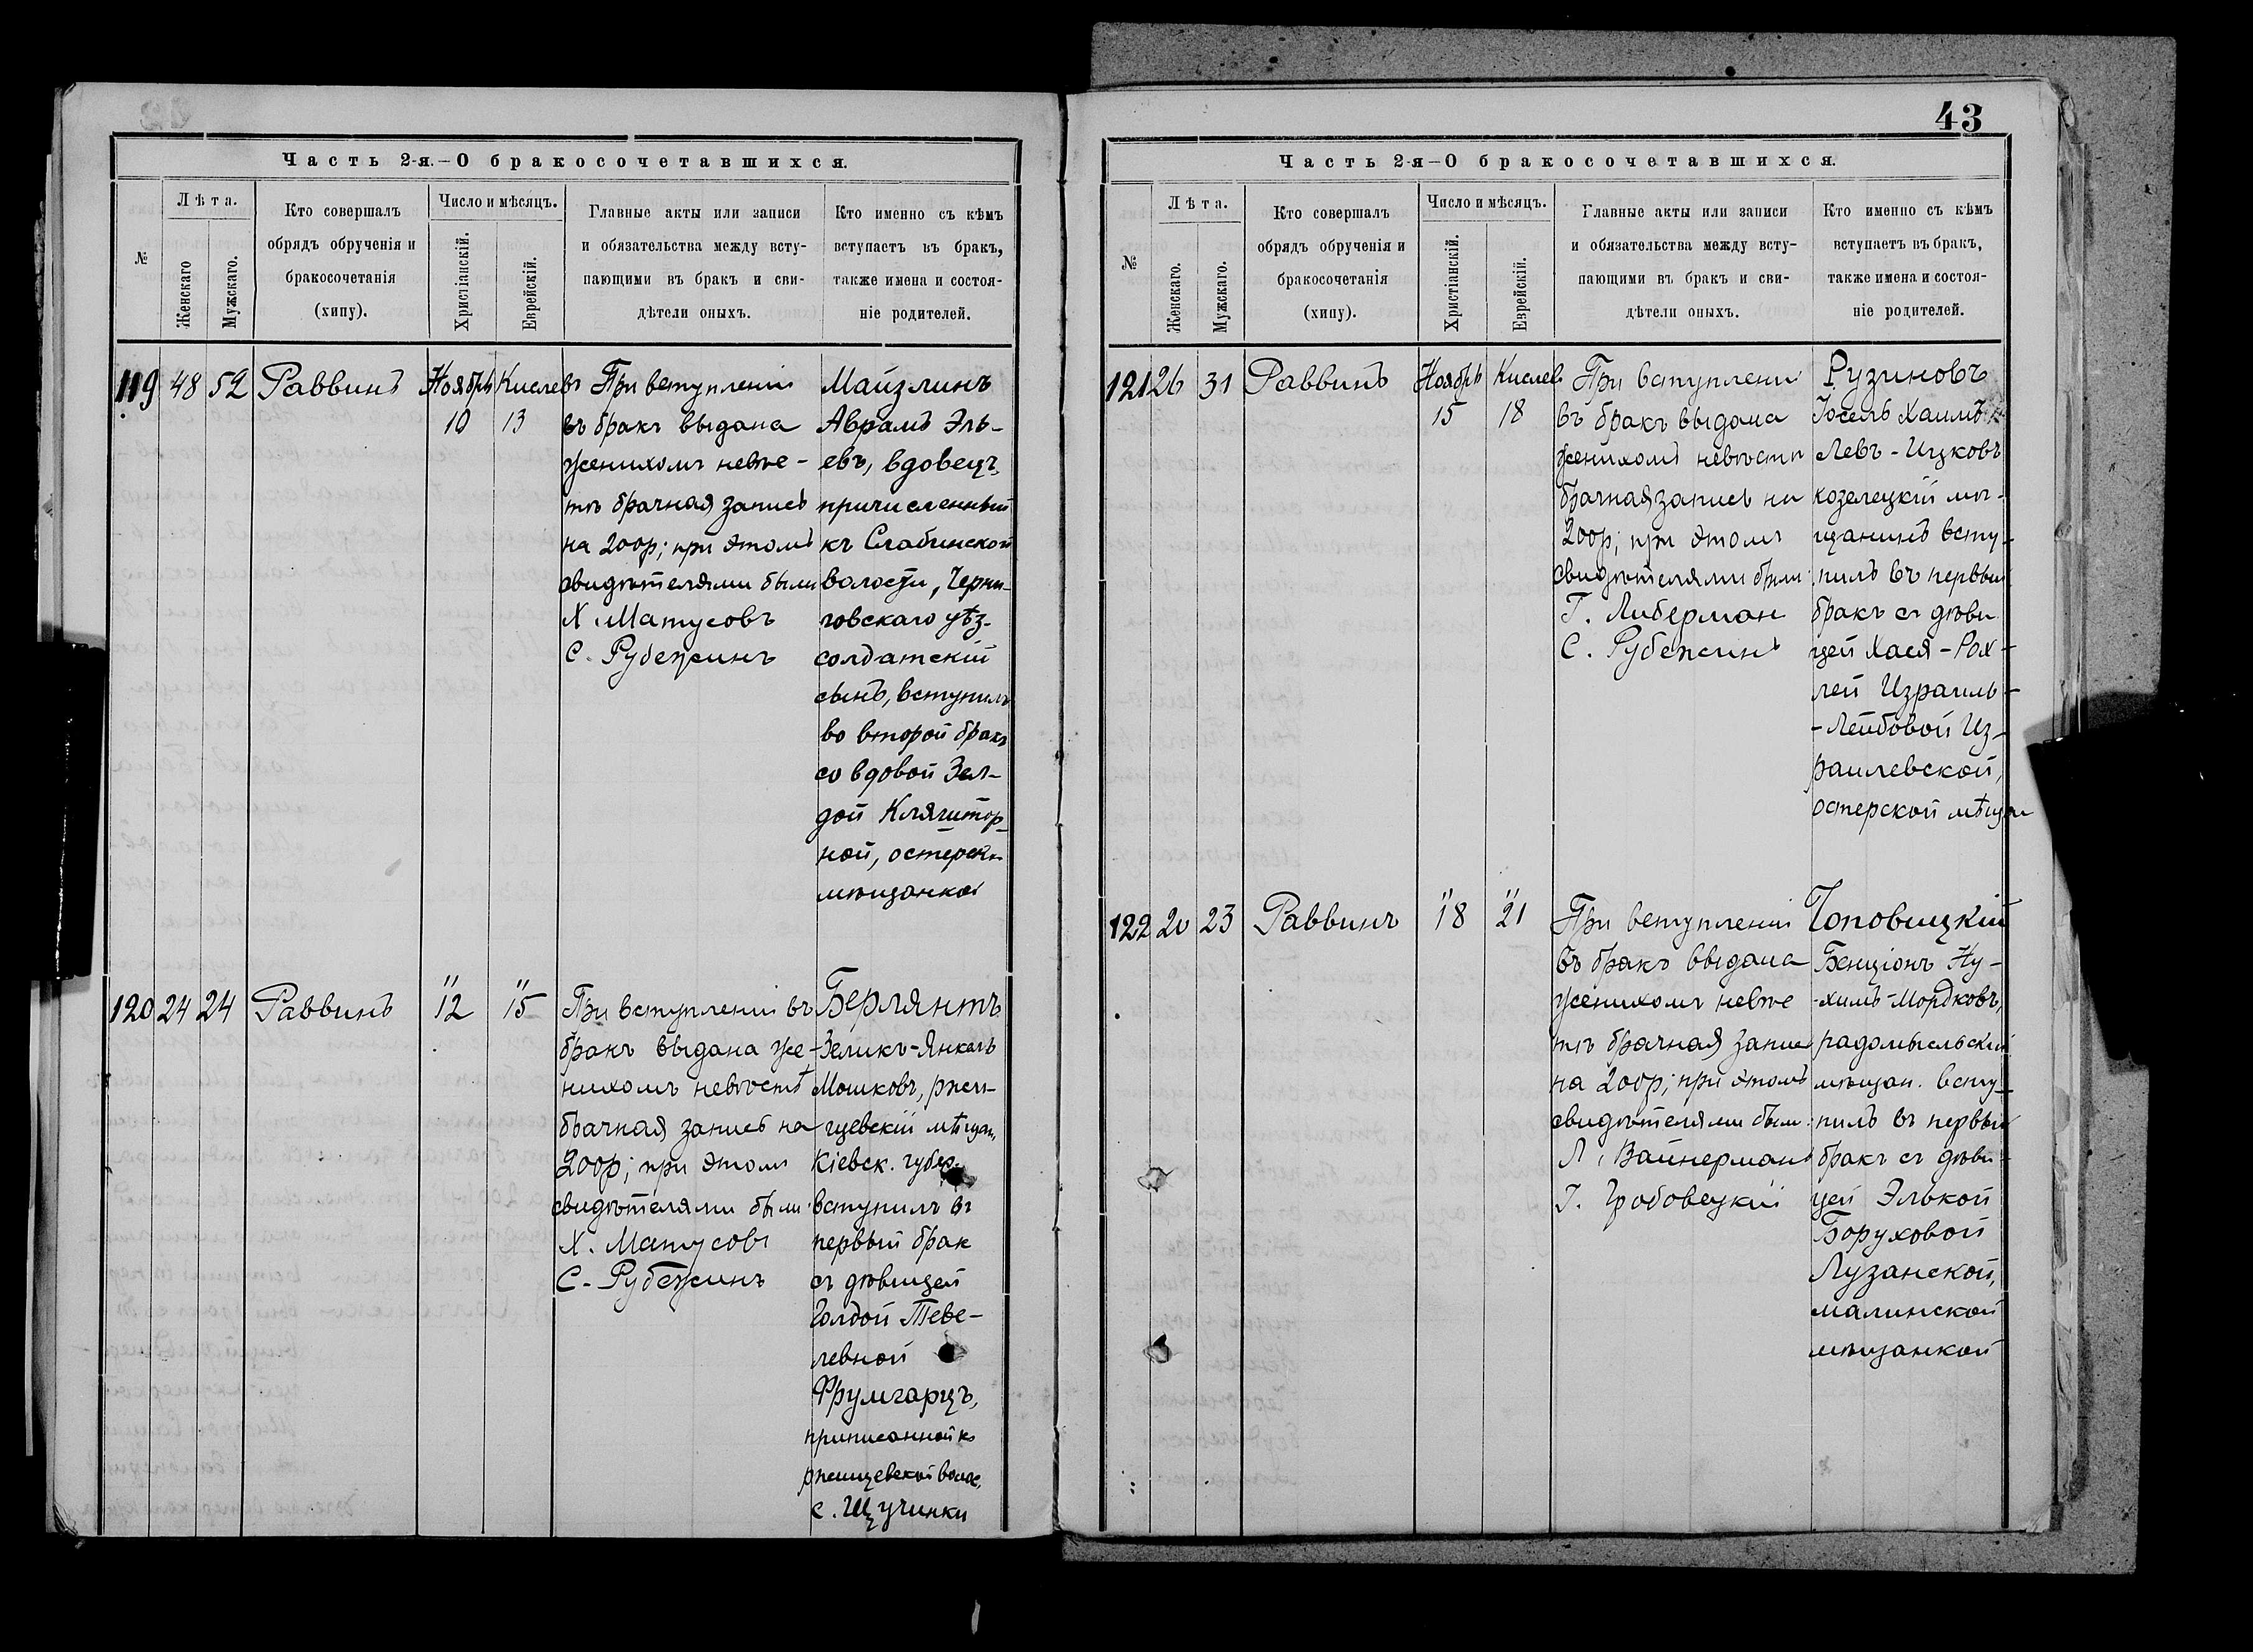 Часть 2-я.—О бракосочетавшихся.
№
Лѣта.
Женскаго
Мужскаго.
Кто совершалъ
обрядъ обрученія и
бракосочетанія
(хипу).
Число и мѣсяцъ.
Христіанскій.
Еврейскій.
Главные акты или записи
и обязательства между всту-
пающими въ бракъ и сви-
дѣтели оныхъ.
Кто именно съ кѣмъ
вступаетъ въ бракъ,
также имена и состоя-
ніе родителей.
119 48 52 Раввинъ
Ноябрь
10
Кислевъ
13
При вступленіи
въ бракъ выдана
женихомъ невѣс-
тѣ брачная запись
на 200р; при этомъ
свидѣтелями были
Х. Матусовъ
С. Рубежинъ
Майзлинъ
Аврамъ Эль-
евъ, вдовецъ,
причисленный
къ Слабинской
волости, Черни-
говскаго уѣз.
солдатскій
сынъ, вступилъ
во второй бракъ
со вдовой Зел-
дой Клягштор-
ной, остерск.
мѣщанкой
120 24 24 Раввинъ
" 12
" 15
При вступленіи въ
бракъ выдана же-
нихомъ невѣстѣ
брачная запись на
200р; при этомъ
свидѣтелями были:
Х. Матусовъ
С. Рубежинъ
Берлянтъ
Зеликъ-Янкель
Мошковъ, ржи-
щевскій мѣщан.
Кіевск. губер.
вступилъ въ
первый брак
съ дѣвицей
Голдой Теве-
левной
Фрумгарцъ,
приписанной к
ржищевской волос.
с. Щучинки
43
Часть 2-я—О бракосочетавшихся.
№
Лѣта.
Женскаго.
Мужскаго.
Кто совершалъ
обрядъ обрученія и
бракосочетанія
(хипу).
Число и мѣсяцъ.
Христіанскій.
Еврейскій.
Главные акты или записи
и обязательства между всту-
пающими въ бракъ и сви-
дѣтели оныхъ.
Кто именно съ кѣмъ
вступаетъ въ бракъ,
также имена и состоя-
ніе родителей.
121 26 31 Раввинъ
Ноябрь
15
Кислев
18
При вступлени
въ бракъ выдана
женихомъ невѣсты
брачная запись на
200р; при этомъ
свидѣтелями были:
Г. Либерман
С. Рубежинъ
Рузиновъ
Іосель Хаимъ
Левъ-Ицковъ
козелецкій мѣ-
щанинъ всту-
пилъ въ первый
бракъ съ дѣви
цей Хася-Рох-
лей Израиль-
-Лейбовой Из-
раилевской,
остерской мѣщан
122 20 23 Раввинъ
" 18
" 21
При вступленіи
въ бракъ выдана
женихомъ невѣс
тѣ брачная запис
на 200р; при этомъ
свидѣтелями были:
Л. Вайнерманъ
Г. Гробовецкій
Топовицкій
Бенціонъ Ну-
-химъ-Мордковъ,
радомысльскій
мѣщан. всту-
пилъ въ первый
бракъ съ дѣви-
цей Элькой
Боруховой
Лузанской,
малинской
мѣщанкой